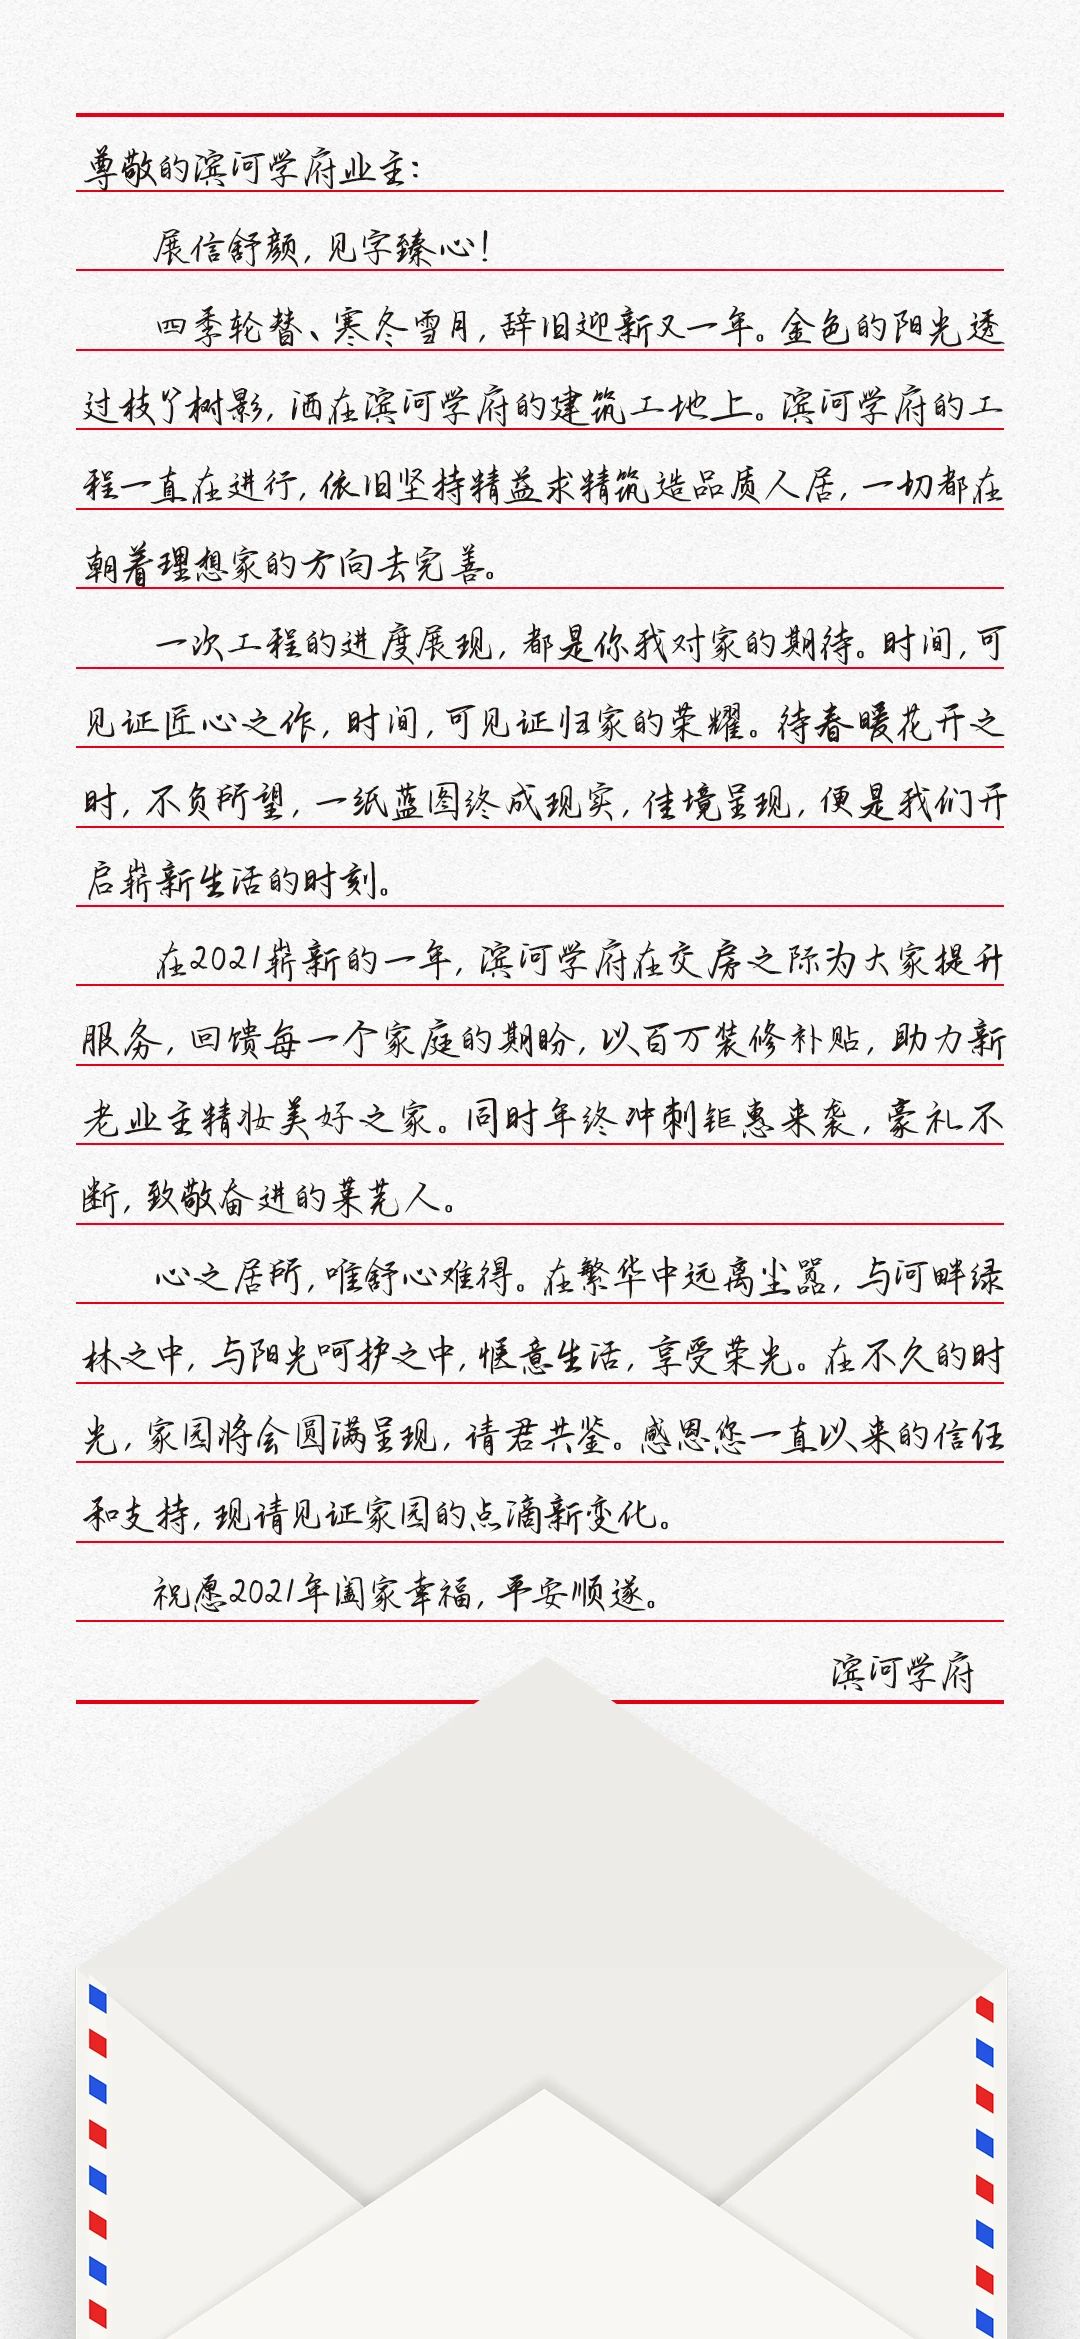 尊敬的滨河学府业主：
展信舒颜，见字臻心！
四季轮替、寒冬雪月，辞旧迎新又一年。金色的阳光透
过枝丫树影，洒在滨河学府的建筑工地上。滨河学府的工
程一直在进行，依旧坚持精益求精筑造品质人居，一切都在
朝着理想家的方向去完善。
一次工程的进度展现，都是你我对家的期待。时间，可
见证匠心之作，时间，可见证归家的荣耀。待春暖花开之
时，不负所望，一纸蓝图终成现实，佳境呈现，便是我们开
启崭新生活的时刻。
在2021崭新的一年，滨河学府在交房之际为大家提升
服务，回馈每一个家庭的期盼，以百万装修补贴，助力新
老业主精妆美好之家。同时年终冲刺钜惠来袭，豪礼不
断，致敬奋进的莱芜人。
心之居所，唯舒心难得。在繁华中远离尘嚣，与河畔绿
林之中，与阳光呵护之中，惬意生活，享受荣光。在不久的时
光，家园将会圆满呈现，请君共鉴。感恩您一直以来的信任
和支持，现请见证家园的点滴新变化。
祝愿2021年阖家幸福，平安顺遂。
滨河学府